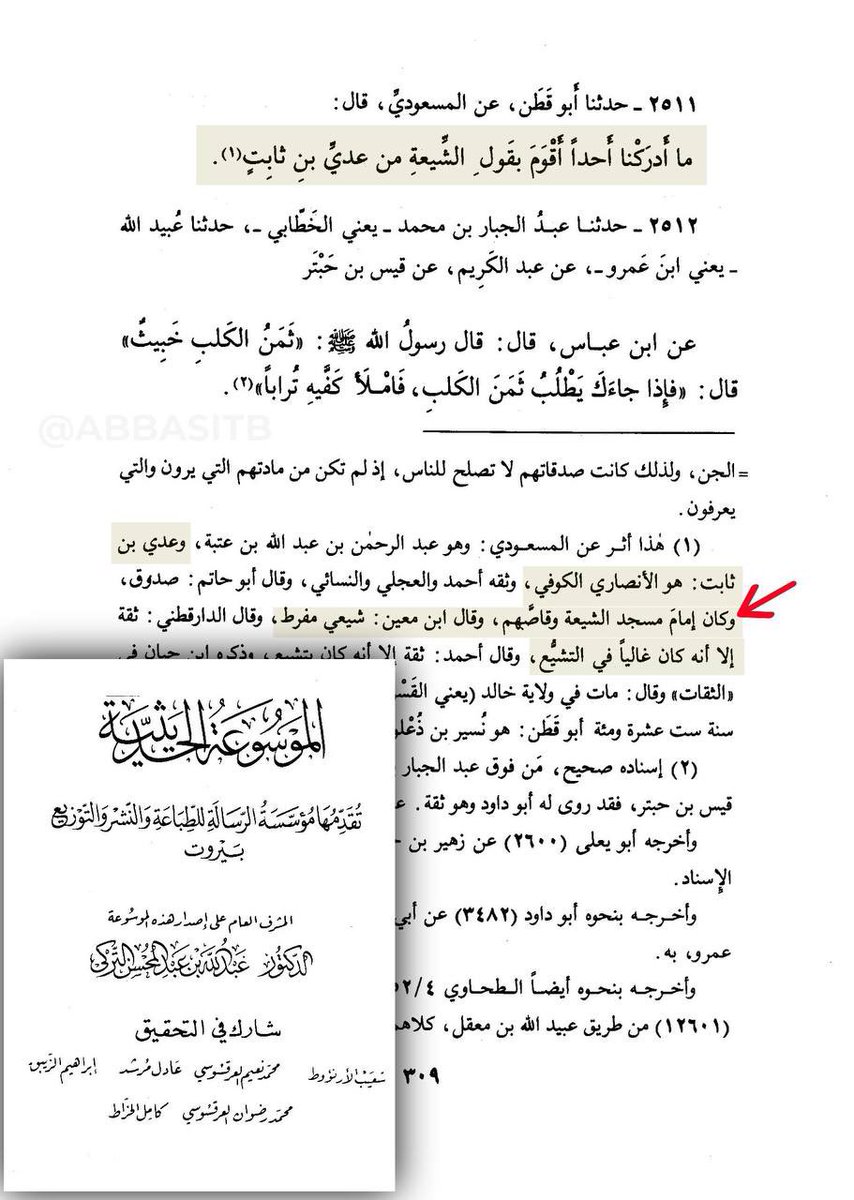 ٢٥١١ ـ حدثنا أَبو قَطَن، عن المسعوديِّ، قال:
ما أَدرَكْنا أَحداً أَقْوَمَ بقَولِ الشِّيعةِ من عديِّ بنِ ثابِتٍ(١).
٢٥١٢ ـ حدثنـا عبـدُ الجبار بن محمد ـ يعني الخَطّابي ـ، حدثنا عُبيد الله
ـ يعني ابنَ عَمرو ـ، عن عبد الكَرِيم، عن قيس بن حَبْتَر
عن ابن عبـاس، قال: قال رسولُ الله ﷺ: «ثَمَنُ الكَلبِ خَبِيثٌ»
قال: «فإِذا جاءَكَ يَطْلُبُ ثَمَنَ الكَلبِ، فَامْـلَأْ كَفَّيهِ تُراباً»(٢).
@ABBASITB
= الجن، ولذلك كانت صدقاتهم لا تصلح للناس، إذ لم تكن من مادتهم التي يرون والتي
يعرفون.
(١) هٰذا أثـر عن المسعـودي: وهو عبد الرحمٰن بن عبد الله بن عتبة، وعدي بن
ثابت: هو الأنصاري الكوفي، وثقه أحمد والعجلي والنسائي، وقال أبو حاتم: صدوق،
وكان إمامَ مسجد الشيعة وقاصَّهم، وقال ابن معين: شيعي مفرط، وقال الدارقطني: ثقة
إلا أنه كان غالياً في التشيُّع، وقال أحمد: ثقة إلا أنه كان يتشيع، وذكره ابن حبان في
«الثقات» وقال: مات في ولاية خالد (يعني القَسْ
سنة ست عشرة ومئة أبو قَطَن: هو نُسير بن ذُعْلو
(٢) إسناده صحيح، مَن فوق عبد الجبار
قيس بن حبتر، فقد روى له أبو داود وهو ثقة.
وأخرجه أبو يعلى (٢٦٠٠) عن زهير بن
الإِسناد.
وأخـرجـه بنحوه أبو داود (٣٤٨٢) عن أبي
عمرو، به.
وأخـرجـه بنحـوه أيضـاً الـطحـاوي ٥٢/٤
(١٢٦٠١) من طريق عبيد الله بن معقل، كلاهم
٣٠٩
الموسوعة الحديثية
تقدمها مؤسسة الرسالة للطباعة والنشر والتوزيع
بيروت
المشرف العام على إصدار هذه الموسوعة
الدكتور عبد الله بن عبد المحسن التركي
شارك في التحقيق
شعيب الأرنؤوط محمد نعيم العرقسوسي عادل مرشد إبراهيم الزيبق
محمد رضوان العرقسوسي كامل الخراط